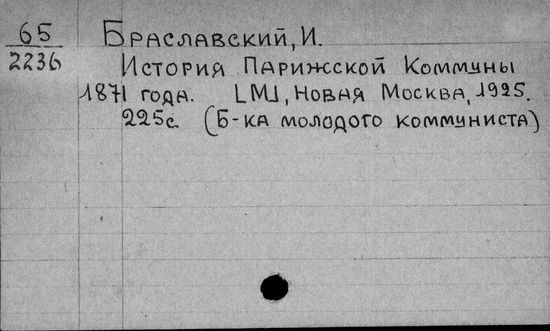 65
2236
Браславский, И.
История Парижской Коммуны
1871 года. [М], Новая Москва, 1925.
225с. (Б-ка молодого коммуниста)